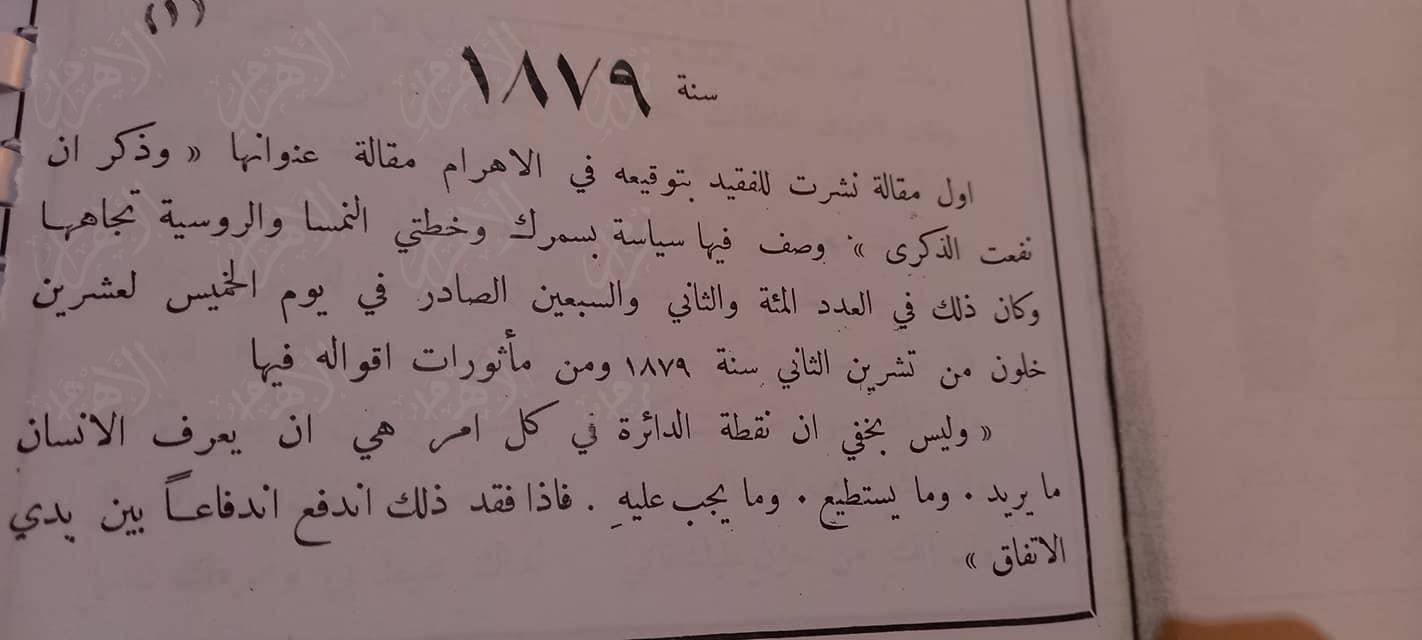 (١)
سنة ١٨٧٩
اول مقالة نشرت للفقيد بتوقيعه في الاهرام مقالة عنوانها « وذكر ان
نفعت الذكرى » وصف فيها سياسة بسمرك وخطتي النمسا والروسية تجاهها
وكان ذلك في العدد المئة والثاني والسبعين الصادر في يوم الخميس لعشرين
خلون من تشرين الثاني سنة ١٨٧٩ ومن مأثورات اقواله فيها
« وليس بخفي ان نقطة الدائرة في كل امر هي ان يعرف الانسان
ما يريد . وما يستطيع . وما يجب عليهِ . فاذا فقد ذلك اندفع اندفاعاً بين يدي
الاتفاق »